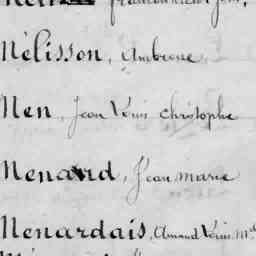 Mélisson, Ambroise,
Men, Jean Louis christophe
Menard, Jean marie
Menardais, Amand Louis M.